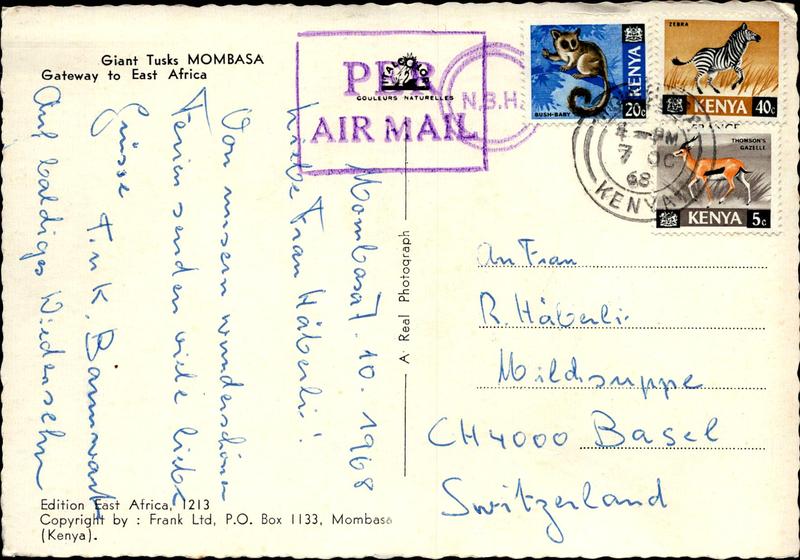 Giant Tusks MOMBASA
Gateway to East Africa
PER
AIR MAIL
COULEURS NATURELLES
BUSH-BABY
KENYA
20c
ZEBRA
KENYA 40c
THOMSON'S
GAZELLE
KENYA 5c
4 - PM
7 OC
68
KENYA
Mombasa 7. 10. 1968
Liebe Frau Häberli!
Von unsern wunderschönen
Ferien senden viele liebe
Grüsse
F. u K. Bannwart
Auf baldiges Wiedersehn
A Real Photograph
An Frau
R. Häberli
CH 4000 Basel
Switzerland
Edition East Africa, 1213
Copyright by : Frank Ltd, P.O. Box 1133, Mombasa
(Kenya).